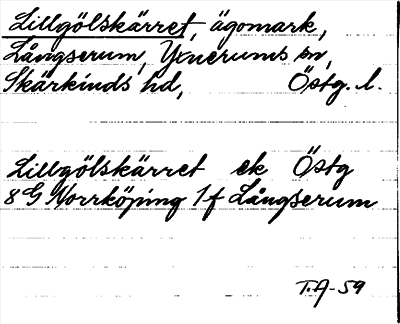 Lillgölskärret, ägomark,
Långserum, Yxnerums sn,
Skärkinds hd, Östg. l.
Lillgölskärret ek Östg
8G Norrköping 1f Långserum
T.A-59